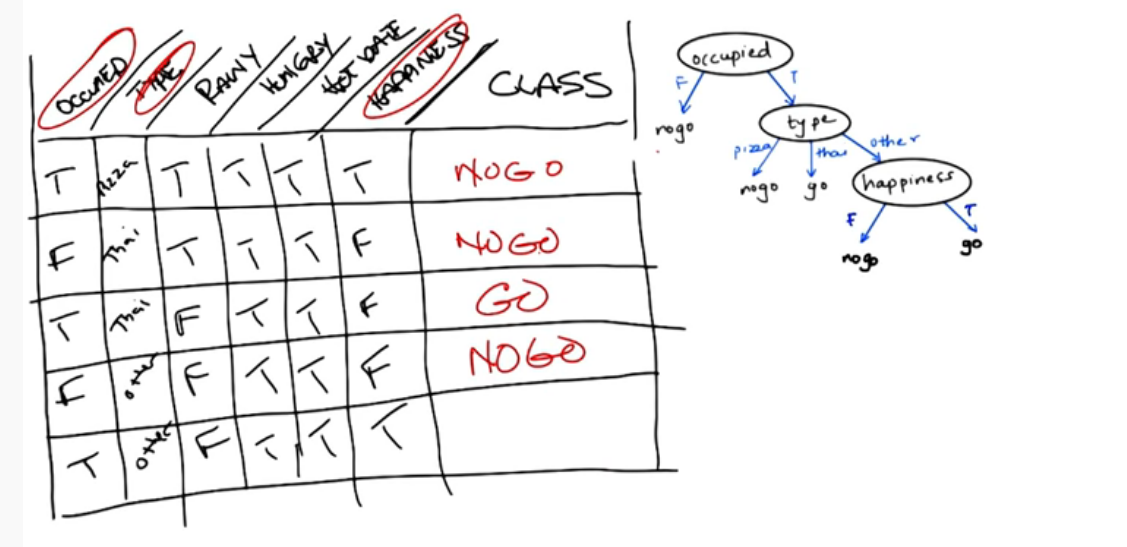 OCCUPIED TYPE RAINY HUNGRY HOT DATE HAPPINESS CLASS
T Pizza T T T T NOGO
F Thai T T T F NOGO
T Thai F T T F GO
F other F T T F NOGO
T other F T T T
occupied
F T
nogo type
pizza thai other
nogo go happiness
F T
nogo go